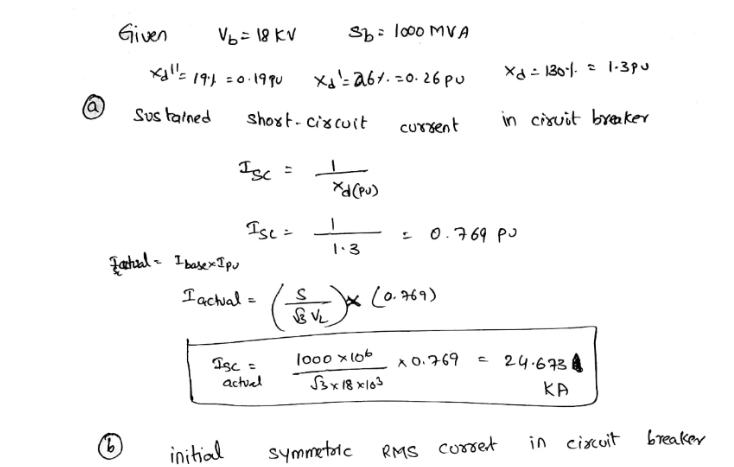 Given Vb = 18 KV Sb = 1000 MVA
Xd'' = 19% = 0.19pu Xd' = 26% = 0.26 pu Xd = 130% = 1.3 pu
(a) Sustained short-circuit current in ciruit breaker
ISC = 1 / Xd(pu)
ISC = 1 / 1.3 = 0.769 PU
Iactual = Ibase × Ipu
I actual = (S / √3 VL) × (0.769)
ISC actual = 1000 × 10^6 / √3 × 18 × 10^3 × 0.769 = 24.673 KA
(b) initial symmetric RMS current in circuit breaker